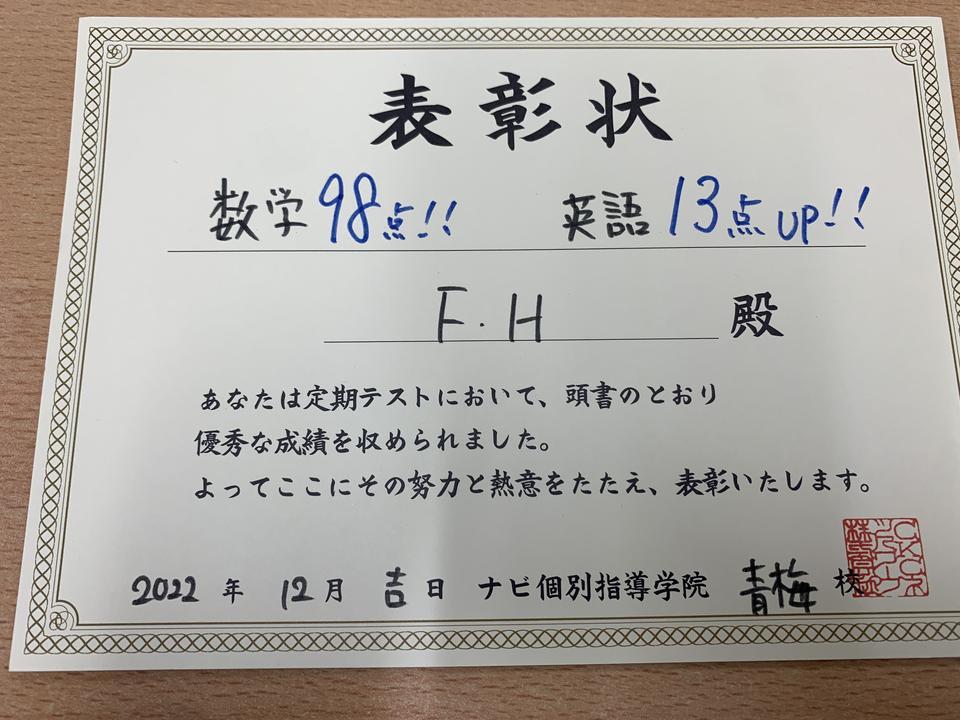 表彰状
数学98点!! 英語13点UP!!
F.H 殿
あなたは定期テストにおいて、頭書のとおり
優秀な成績を収められました。
よってここにその努力と熱意をたたえ、表彰いたします。
2022年 12月 吉日 ナビ個別指導学院 青梅校